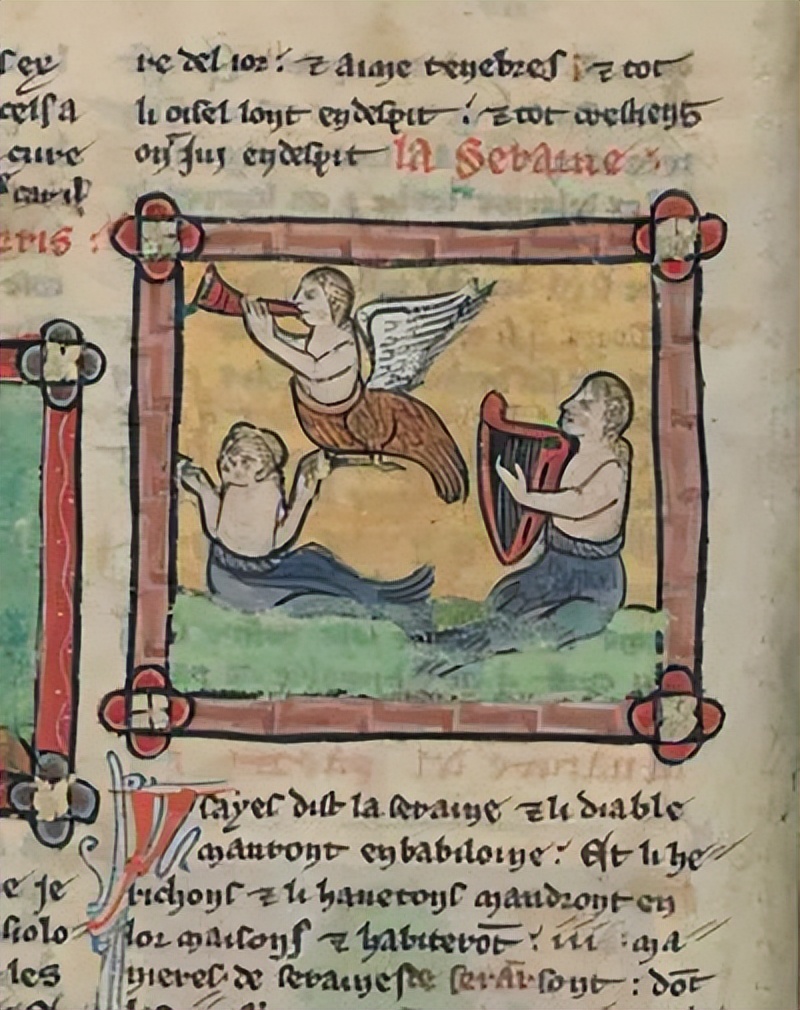 celsa
cure
car il
re del ior : ⁊ aime tenebres ⁊ tot
li oisel lont en despit : ⁊ tot
Jui en despit la Seraine :
e je
siolo
les
Ysayes dist la seraine ⁊ li diable
manront en babiloine : Et li he
richons ⁊ li hanetons mandront en
lor maisons ⁊ habiterōt : iii : ma
nieres de seraines sont : dōt